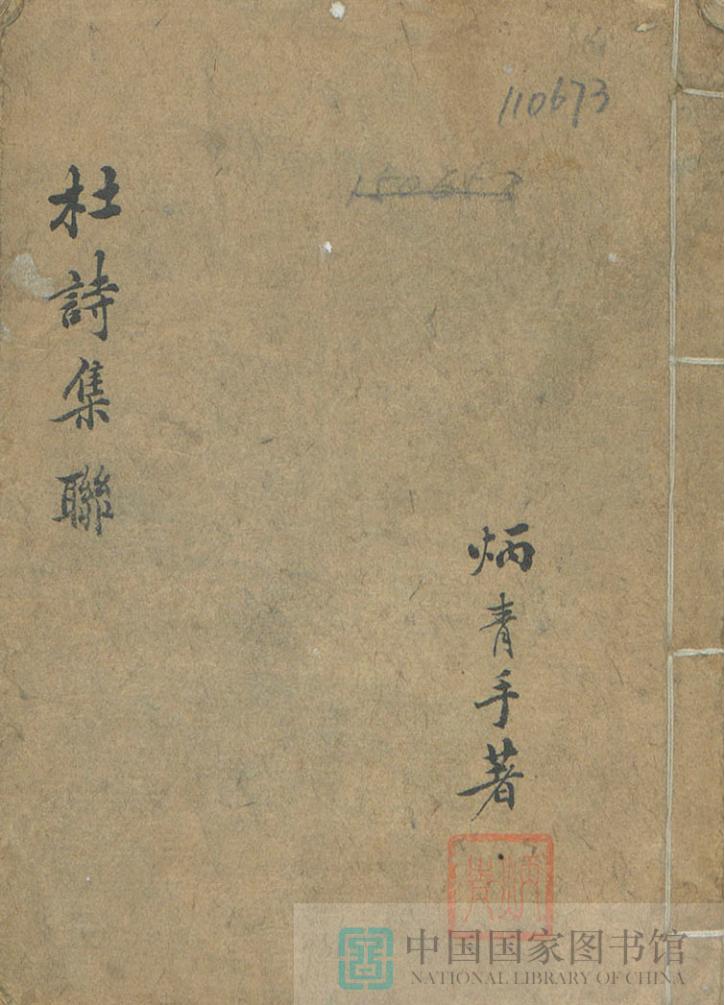 110673
杜詩集聯
炳青手著
炳青
中国国家图书馆
NATIONAL LIBRARY OF CHINA